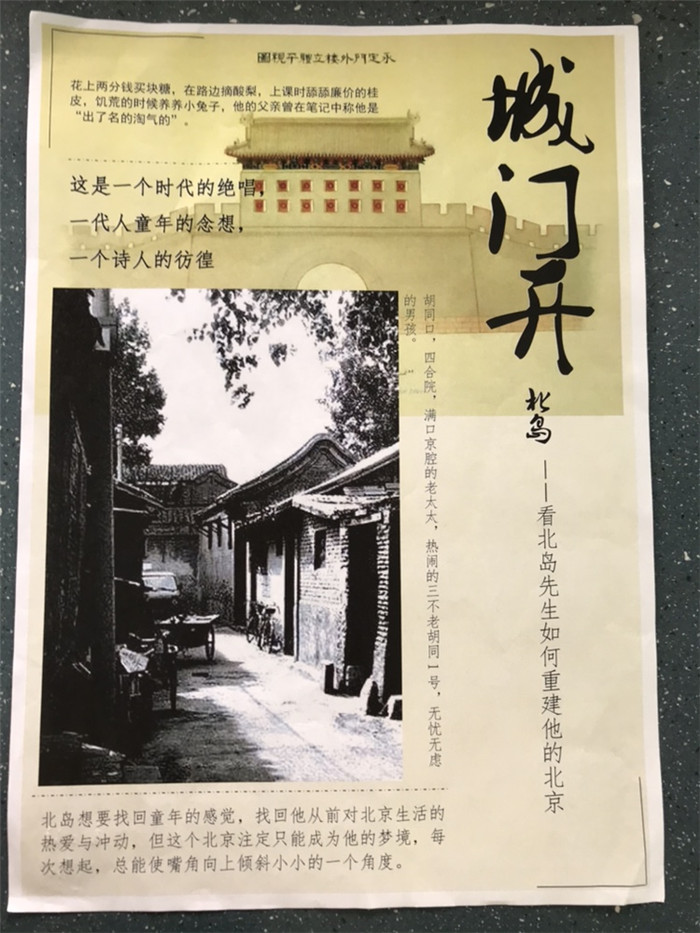 永定门外楼立体平视图
城门开
北岛
——看北岛先生如何重建他的北京
花上两分钱买块糖，在路边摘酸梨，上课时舔舔廉价的桂
皮，饥荒的时候养养小兔子，他的父亲曾在笔记中称他是
“出了名的淘气的”。
这是一个时代的绝唱，
一代人童年的念想，
一个诗人的彷徨
胡同口，四合院，满口京腔的老太太，热闹的三不老胡同1号，无忧无虑
的男孩。
北岛想要找回童年的感觉，找回他从前对北京生活的
热爱与冲动，但这个北京注定只能成为他的梦境，每
次想起，总能使嘴角向上倾斜小小的一个角度。